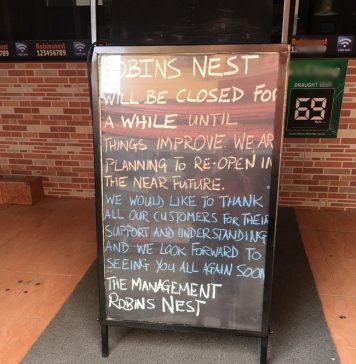 Robinsnest
123456789
Robinsnest
123456789
ROBINS NEST
WILL BE CLOSED FOR
A WHILE UNTIL
THINGS IMPROVE WE AR
PLANNING TO RE-OPEN IN
THE NEAR FUTURE.
WE WOULD LIKE TO THANK
ALL OUR CUSTOMERS FOR THEIR
SUPPORT AND UNDERSTANDING
AND WE LOOK FORWARD TO
SEEING YOU ALL AGAIN SOON
THE MANAGEMENT
ROBINS NEST
DRAUGHT BEER
69